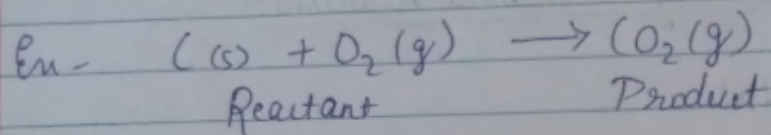 Ex- C(s) + O₂(g) → CO₂(g)
Reactant Product